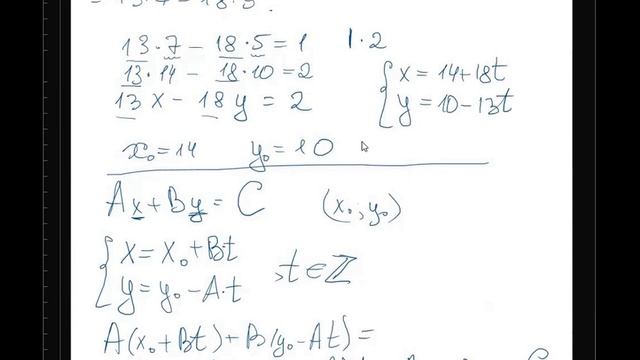 13·7 − 18·5 = 1 | · 2
13·14 − 18·10 = 2
13x − 18y = 2
{ x = 14 + 18t
y = 10 − 13t
x₀ = 14 y₀ = 10
Ax + By = C (x₀; y₀)
{ x = x₀ + B·t
y = y₀ − A·t , t ∈ ℤ
A(x₀ + Bt) + B(y₀ − At) =